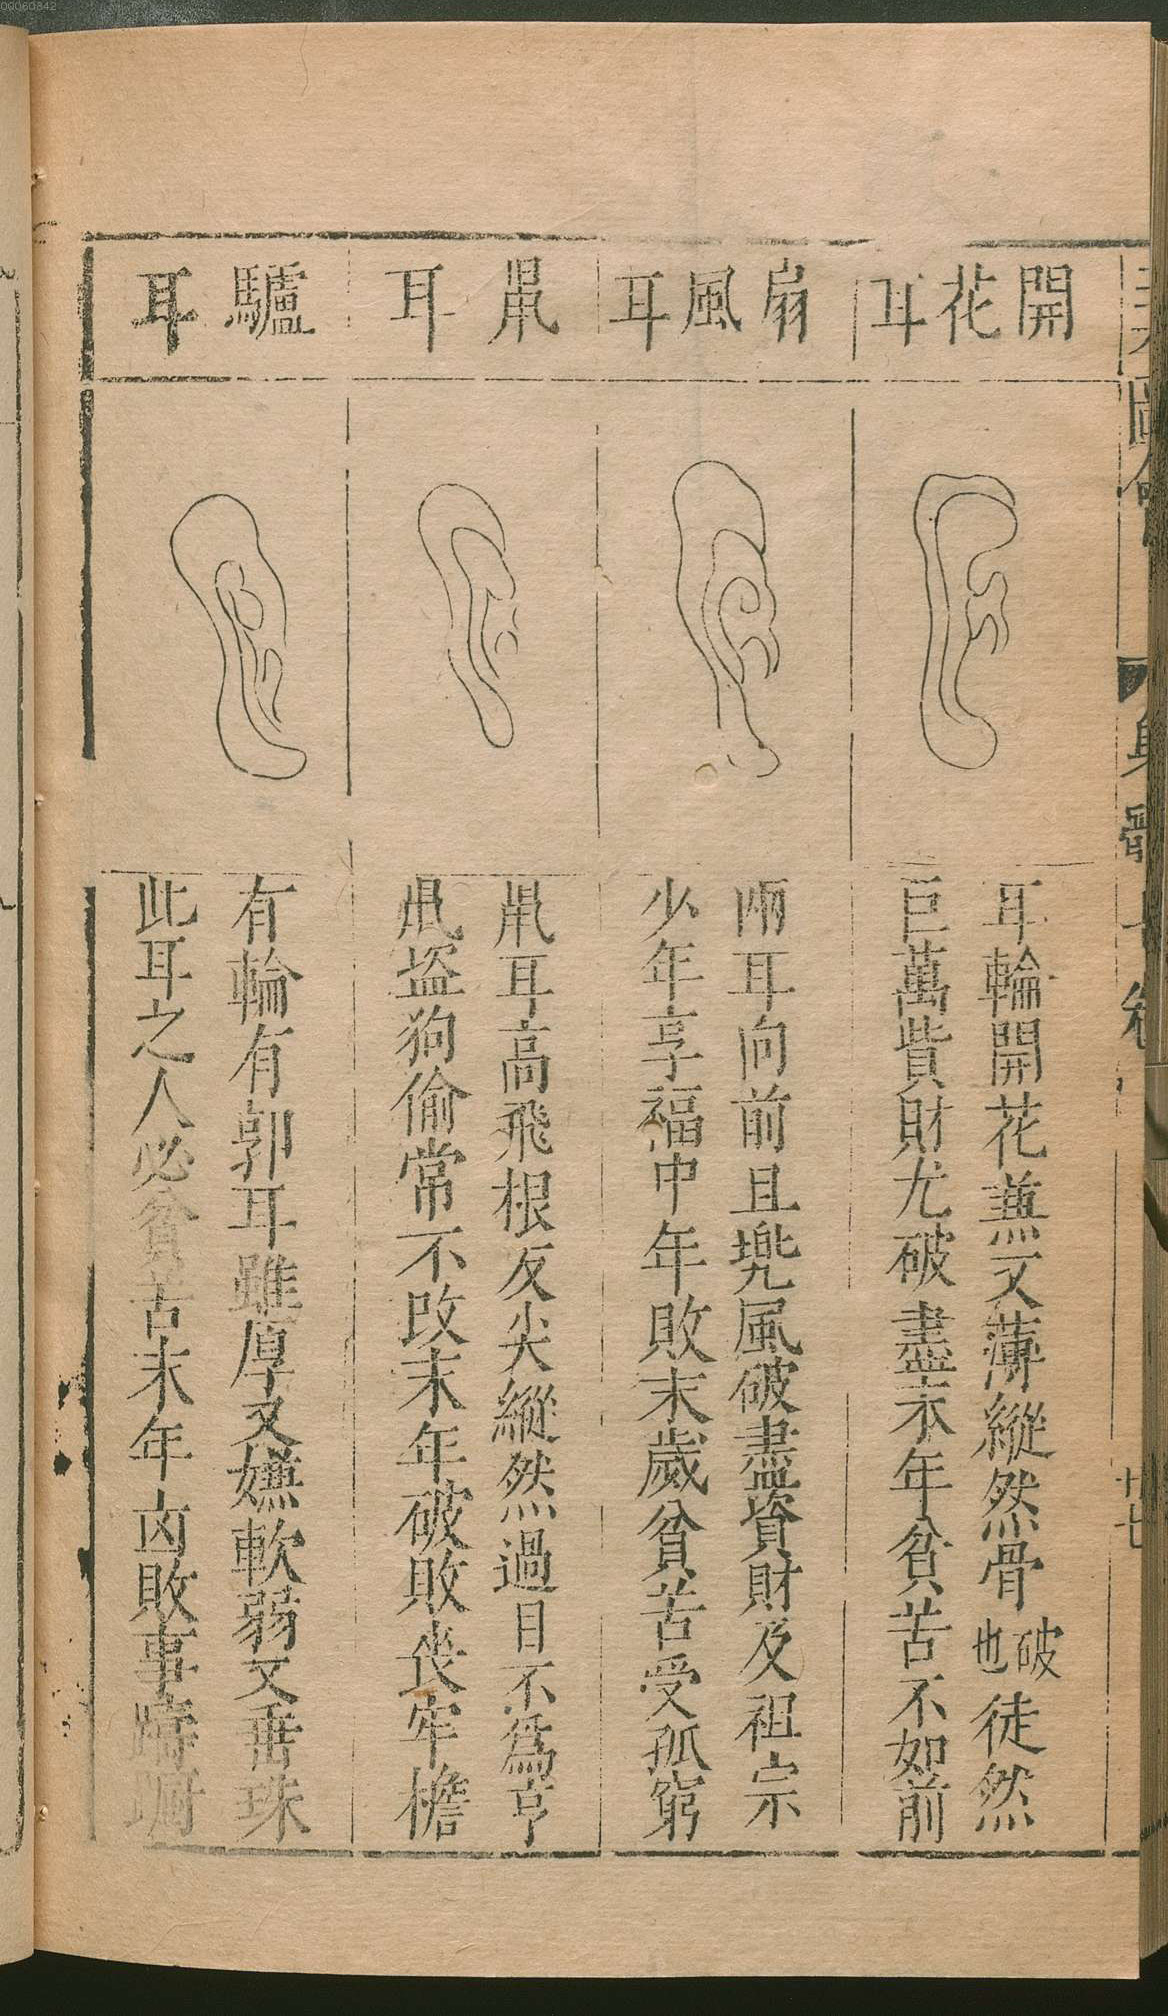 00060342
開花耳
耳輪開花兼又薄縱然骨破也徒然
巨萬貲財尤破盡末年貧苦不如前
扇風耳
兩耳向前且兜風破盡資財及祖宗
少年享福中年敗末歲貧苦受孤窮
鼠耳
鼠耳高飛根反尖縱然過目不為亨
鼠盜狗偷常不改末年破敗喪牢檐
驢耳
有輪有郭耳雖厚又嫌軟弱又垂珠
此耳之人必貧苦末年凶敗事躊躇
圖會
身體七卷
十七